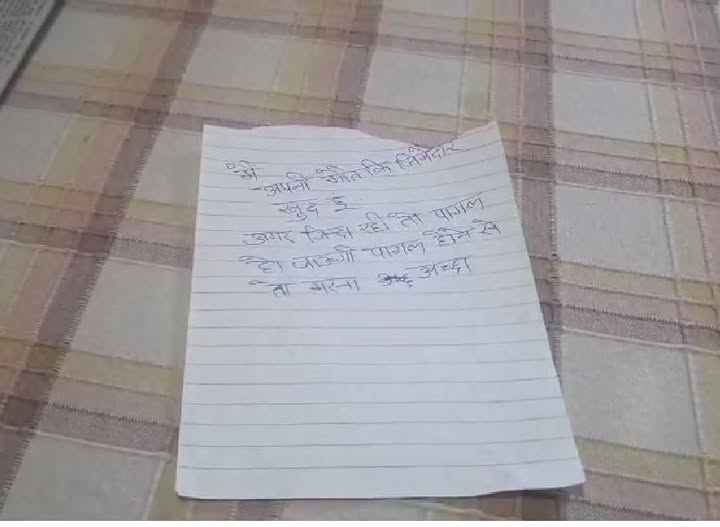 मै
अपनी मौत कि जिमेदार
खुद हूं
अगर जिन्दा रही तो पागल
हो जाउंगी पागल होने से
तो मरना अच्छा